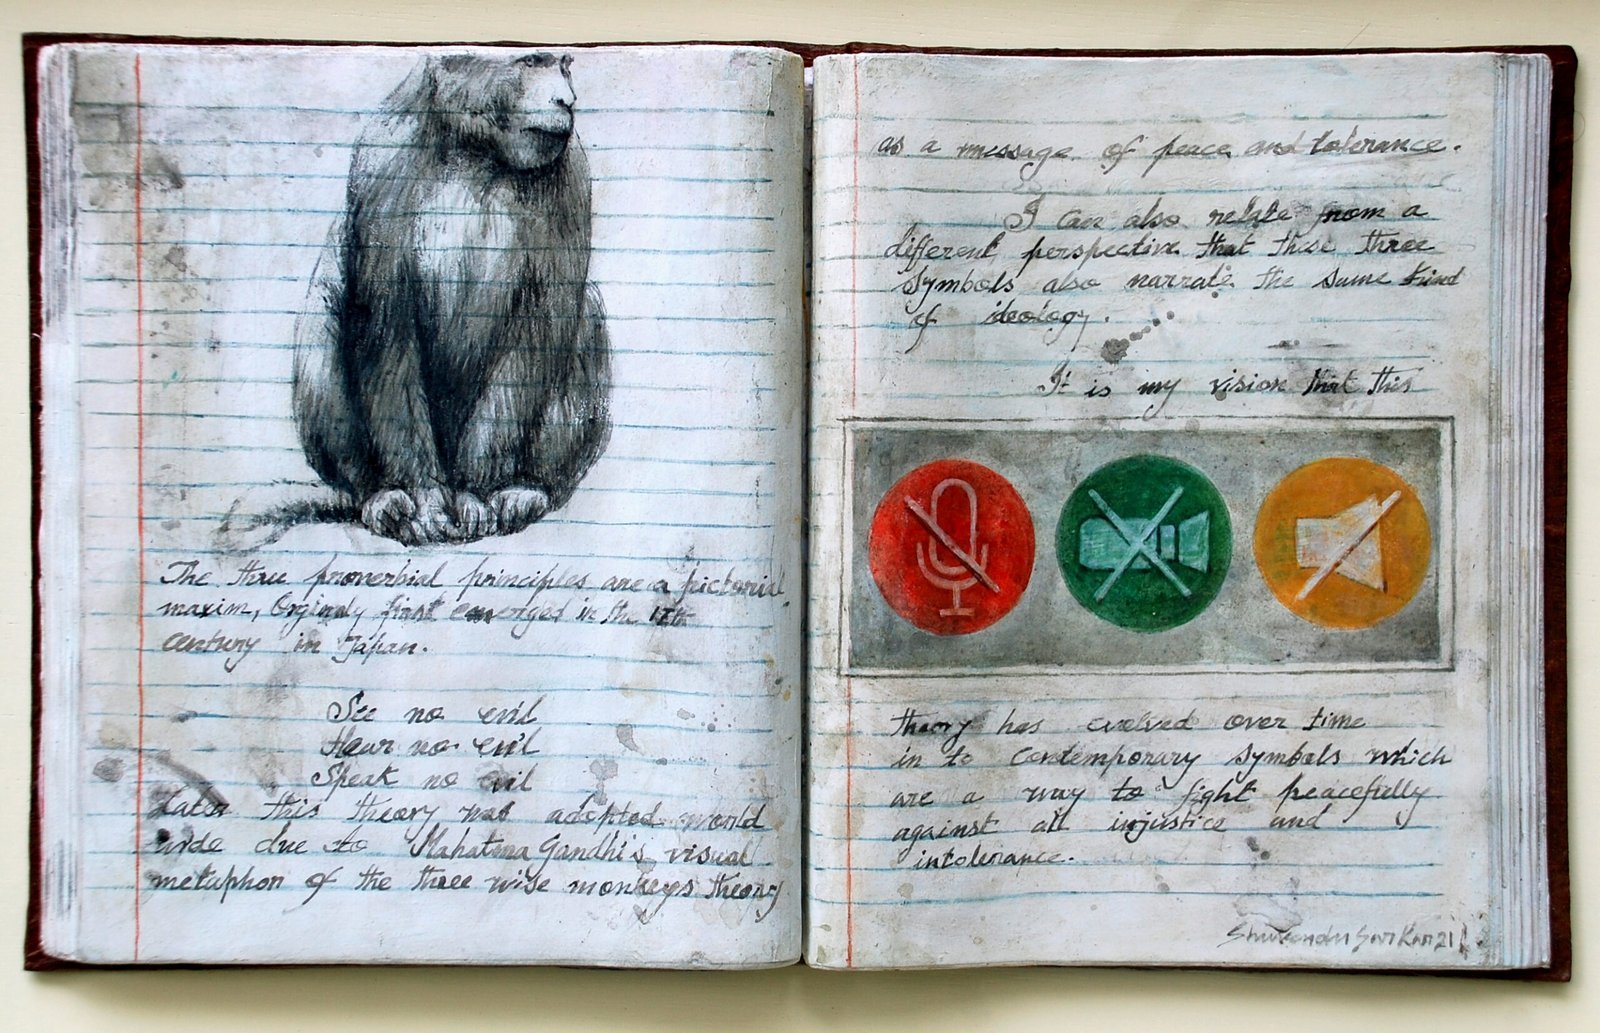 The three proverbial principles are a pictorial
maxim, Orginaly first emerged in the 17th
century in Japan.
See no evil
Hear no evil
Speak no evil
Later this theory was adopted world
wide due to Mahatma Gandhi's visual
metaphor of the three wise monkeys theory
as a message of peace and tolerance.
I can also relate from a
different perspective that these three
symbols also narrate the same kind
of ideology.
It is my vision that this
theory has evolved over time
in to contemporary symbols which
are a way to fight peacefully
against all injustice and
intolerance.
Sarkar 21